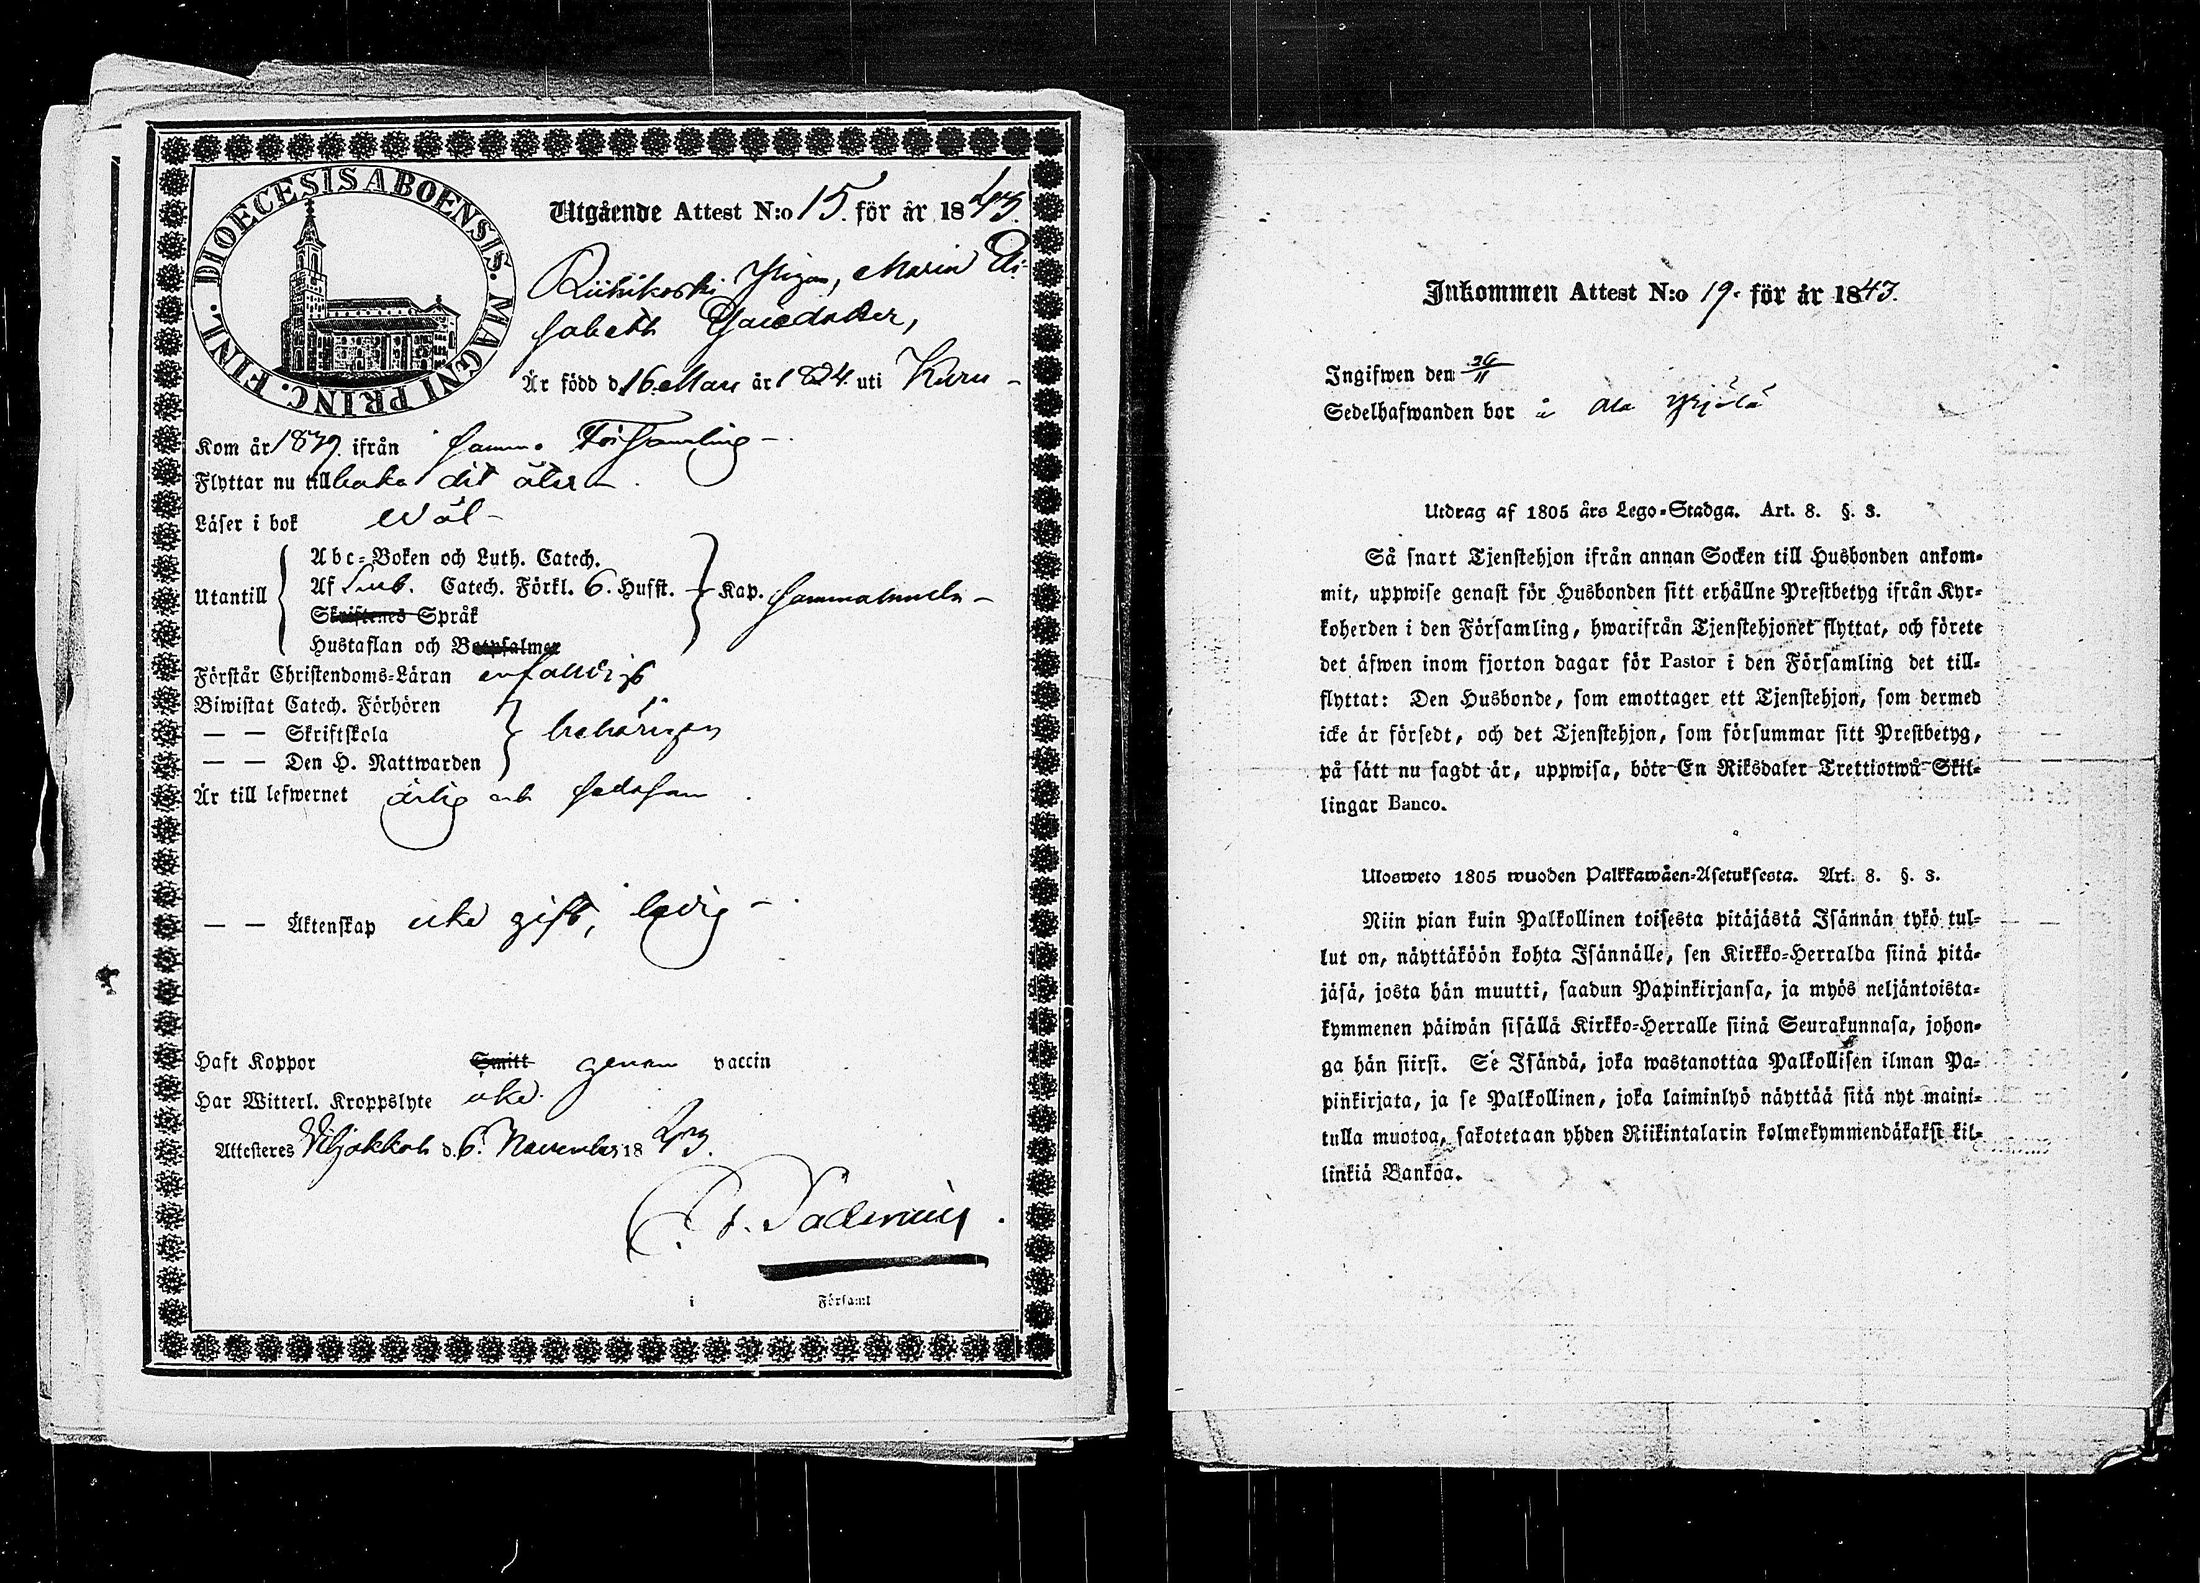 DIOECESIS ABOENSIS. MAGNI PRINC. FINL.
Utgående Attest N:o 15. för år 1843.
Riihikoski Pigan, Maria Eli-
sabeth
Är född d. 16 Mars år 1824. uti Kuru –
Kom år 1839. ifrån samma Församling –
Flyttar nu till baka dit åter – .
Läser i bok wäl –
Utantill
Abc-Boken och Luth. Catech.
Af Catech. Förkl. 6. Hufst.
Skriftenes Språk
Hustaflan och Botpsalmer
Kap. sammalunda –
Förstår Christendoms-Läran enfaldigt
Biwistat Catech. Förhören
— — Skriftskola
— — Den H. Nattwarden
behörigen
Är till lefwernet ärlig och sedesam .
— — Äktenskap icke gift, ledig –
Haft Koppor Smitt genom vaccin
Har Witterl. Kroppslyte icke.
Attesteres Wiljakkala d. 6. November 1843.
i Församl
Inkommen Attest N:o 19. för år 1843.
Ingifwen den 26/11
Sedelhafwanden bor å Ala
Utdrag af 1805 års Lego-Stadga. Art. 8. §. 3.
Så snart Tjenstehjon ifrån annan Socken till Husbonden ankom-
mit, uppwise genast för Husbonden sitt erhållne Prestbetyg ifrån Kyr-
koherden i den Församling, hwarifrån Tjenstehjonet flyttat, och förete
det äfwen inom fjorton dagar för Pastor i den Församling det till-
flyttat: Den Husbonde, som emottager ett Tjenstehjon, som dermed
icke är försedt, och det Tjenstehjon, som försummar sitt Prestbetyg,
på sätt nu sagdt är, uppwisa, böte En Riksdaler Trettiotwå Skil-
lingar Banco.
Ulosweto 1805 wuoden Palkkawäen-Asetuksesta. Art. 8. §. 3.
Niin pian kuin Palkollinen toisesta pitäjästä Isännän tykö tul-
lut on, näyttäköön kohta Isännälle, sen Kirkko-Herralda siinä pitä-
jäsä, josta hän muutti, saadun Papinkirjansa, ja myös neljäntoista-
kymmenen päiwän sisällä Kirkko-Herralle siinä Seurakunnasa, johon-
ga hän siirsi. Se Isändä, joka wastanottaa Palkollisen ilman Pa-
pinkirjata, ja se Palkollinen, joka laiminlyö näyttää sitä nyt maini-
tulla muotoa, sakotetaan yhden Riikintalarin kolmekymmendäkaksi kil-
linkiä Bankoa.